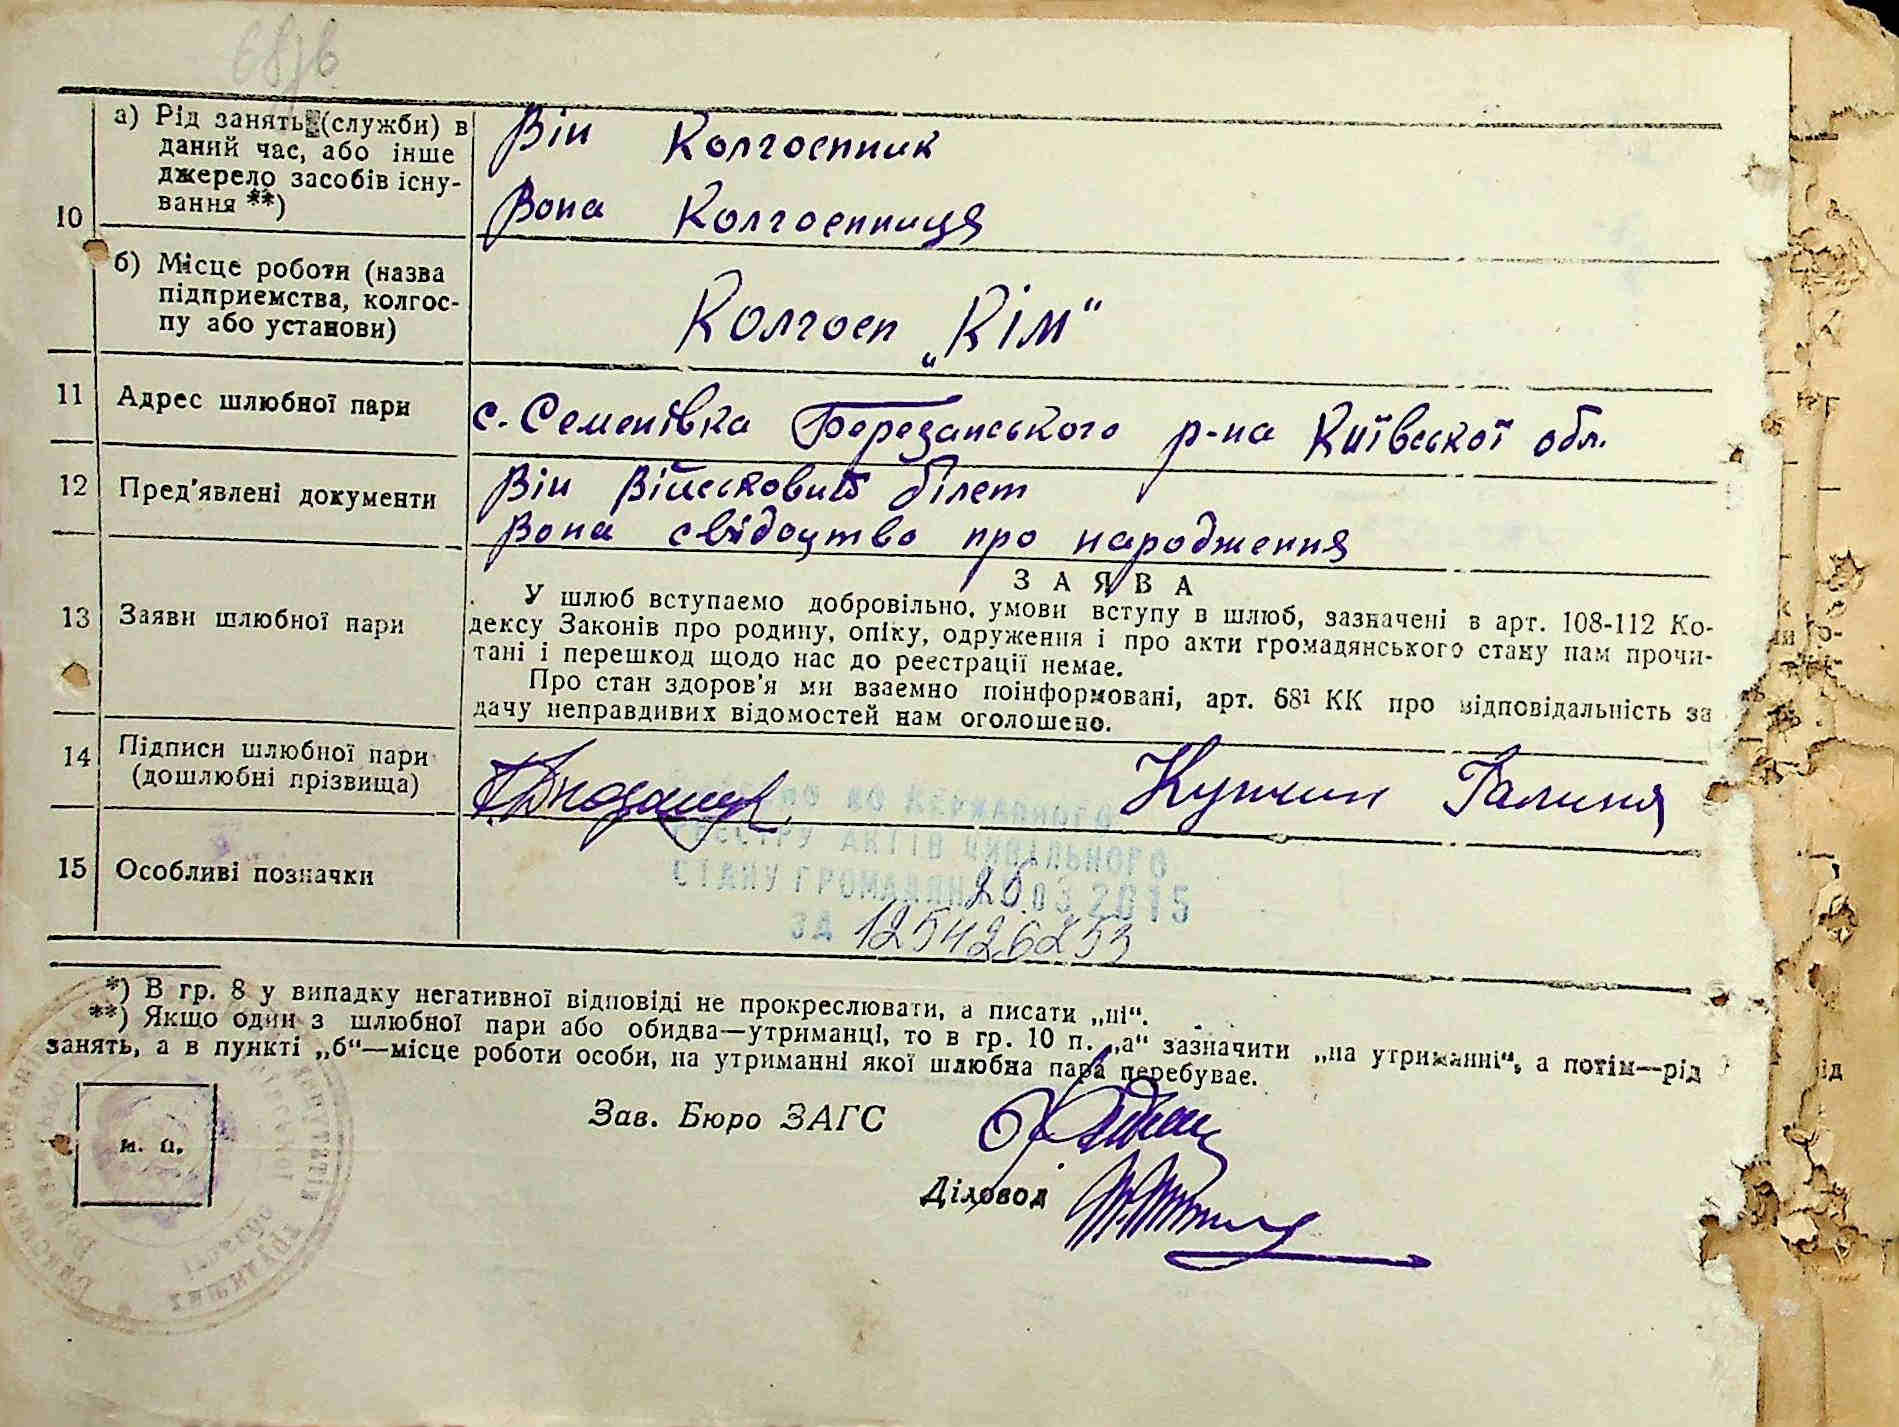 10
а) Рід занять (служби) в
даний час, або інше
джерело засобів існу-
вання **)
Він Колгоспник
Вона Колгоспниця
б) Місце роботи (назва
підприємства, колгос-
пу або установи)
Колгосп „Кім“
11 Адрес шлюбної пари
с. Семенівка Березанського р-на Київської обл.
12 Пред'явлені документи
Він Військовий білет
Вона свідоцтво про народження
13 Заяви шлюбної пари
ЗАЯВА
У шлюб вступаємо добровільно, умови вступу в шлюб, зазначені в арт. 108-112 Ко-
дексу Законів про родину, опіку, одруження і про акти громадянського стану нам прочи-
тані і перешкод щодо нас до реєстрації немає.
Про стан здоров'я ми взаємно поінформовані, арт. 68¹ КК про відповідальність за
дачу неправдивих відомостей нам оголошено.
14 Підписи шлюбної пари
(дошлюбні прізвища)
Галина
15 Особливі позначки
ДО ДЕРЖАВНОГО
РЕЄСТРУ АКТІВ ЦИВІЛЬНОГО
СТАНУ ГРОМАДЯН 03 2015
ЗА 125426253
*) В гр. 8 у випадку негативної відповіді не прокреслювати, а писати „ні“.
**) Якщо один з шлюбної пари або обидва—утриманці, то в гр. 10 п. „а“ зазначити „на утриманні“, а потім—рід
занять, а в пункті „б“—місце роботи особи, на утриманні якої шлюбна пара перебуває.
м. п.
Зав. Бюро ЗАГС
Діловод